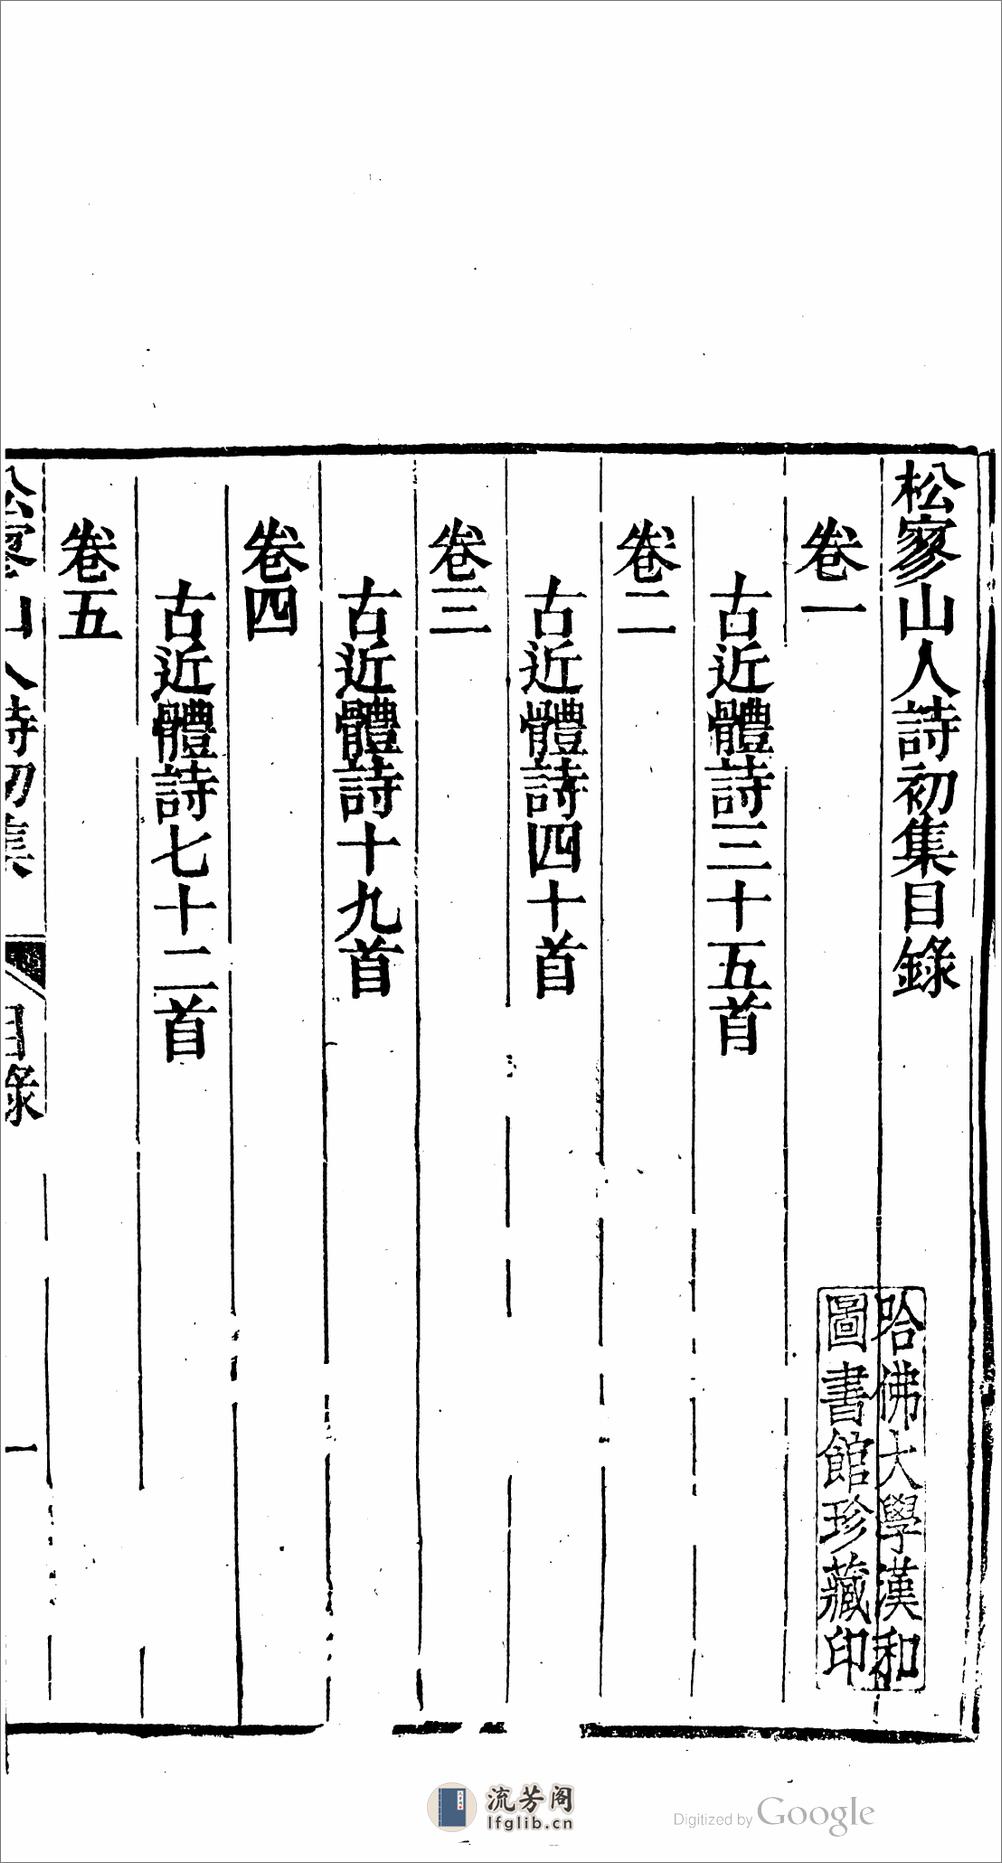 松寥山人詩初集目錄
卷一
古近體詩三十五首
卷二
古近體詩四十首
卷三
古近體詩十九首
卷四
古近體詩七十二首
卷五
松寥山人詩初集
目錄
一
哈佛大學漢和
圖書館珍藏印
流芳阁
lfglib.cn
Digitized by Google